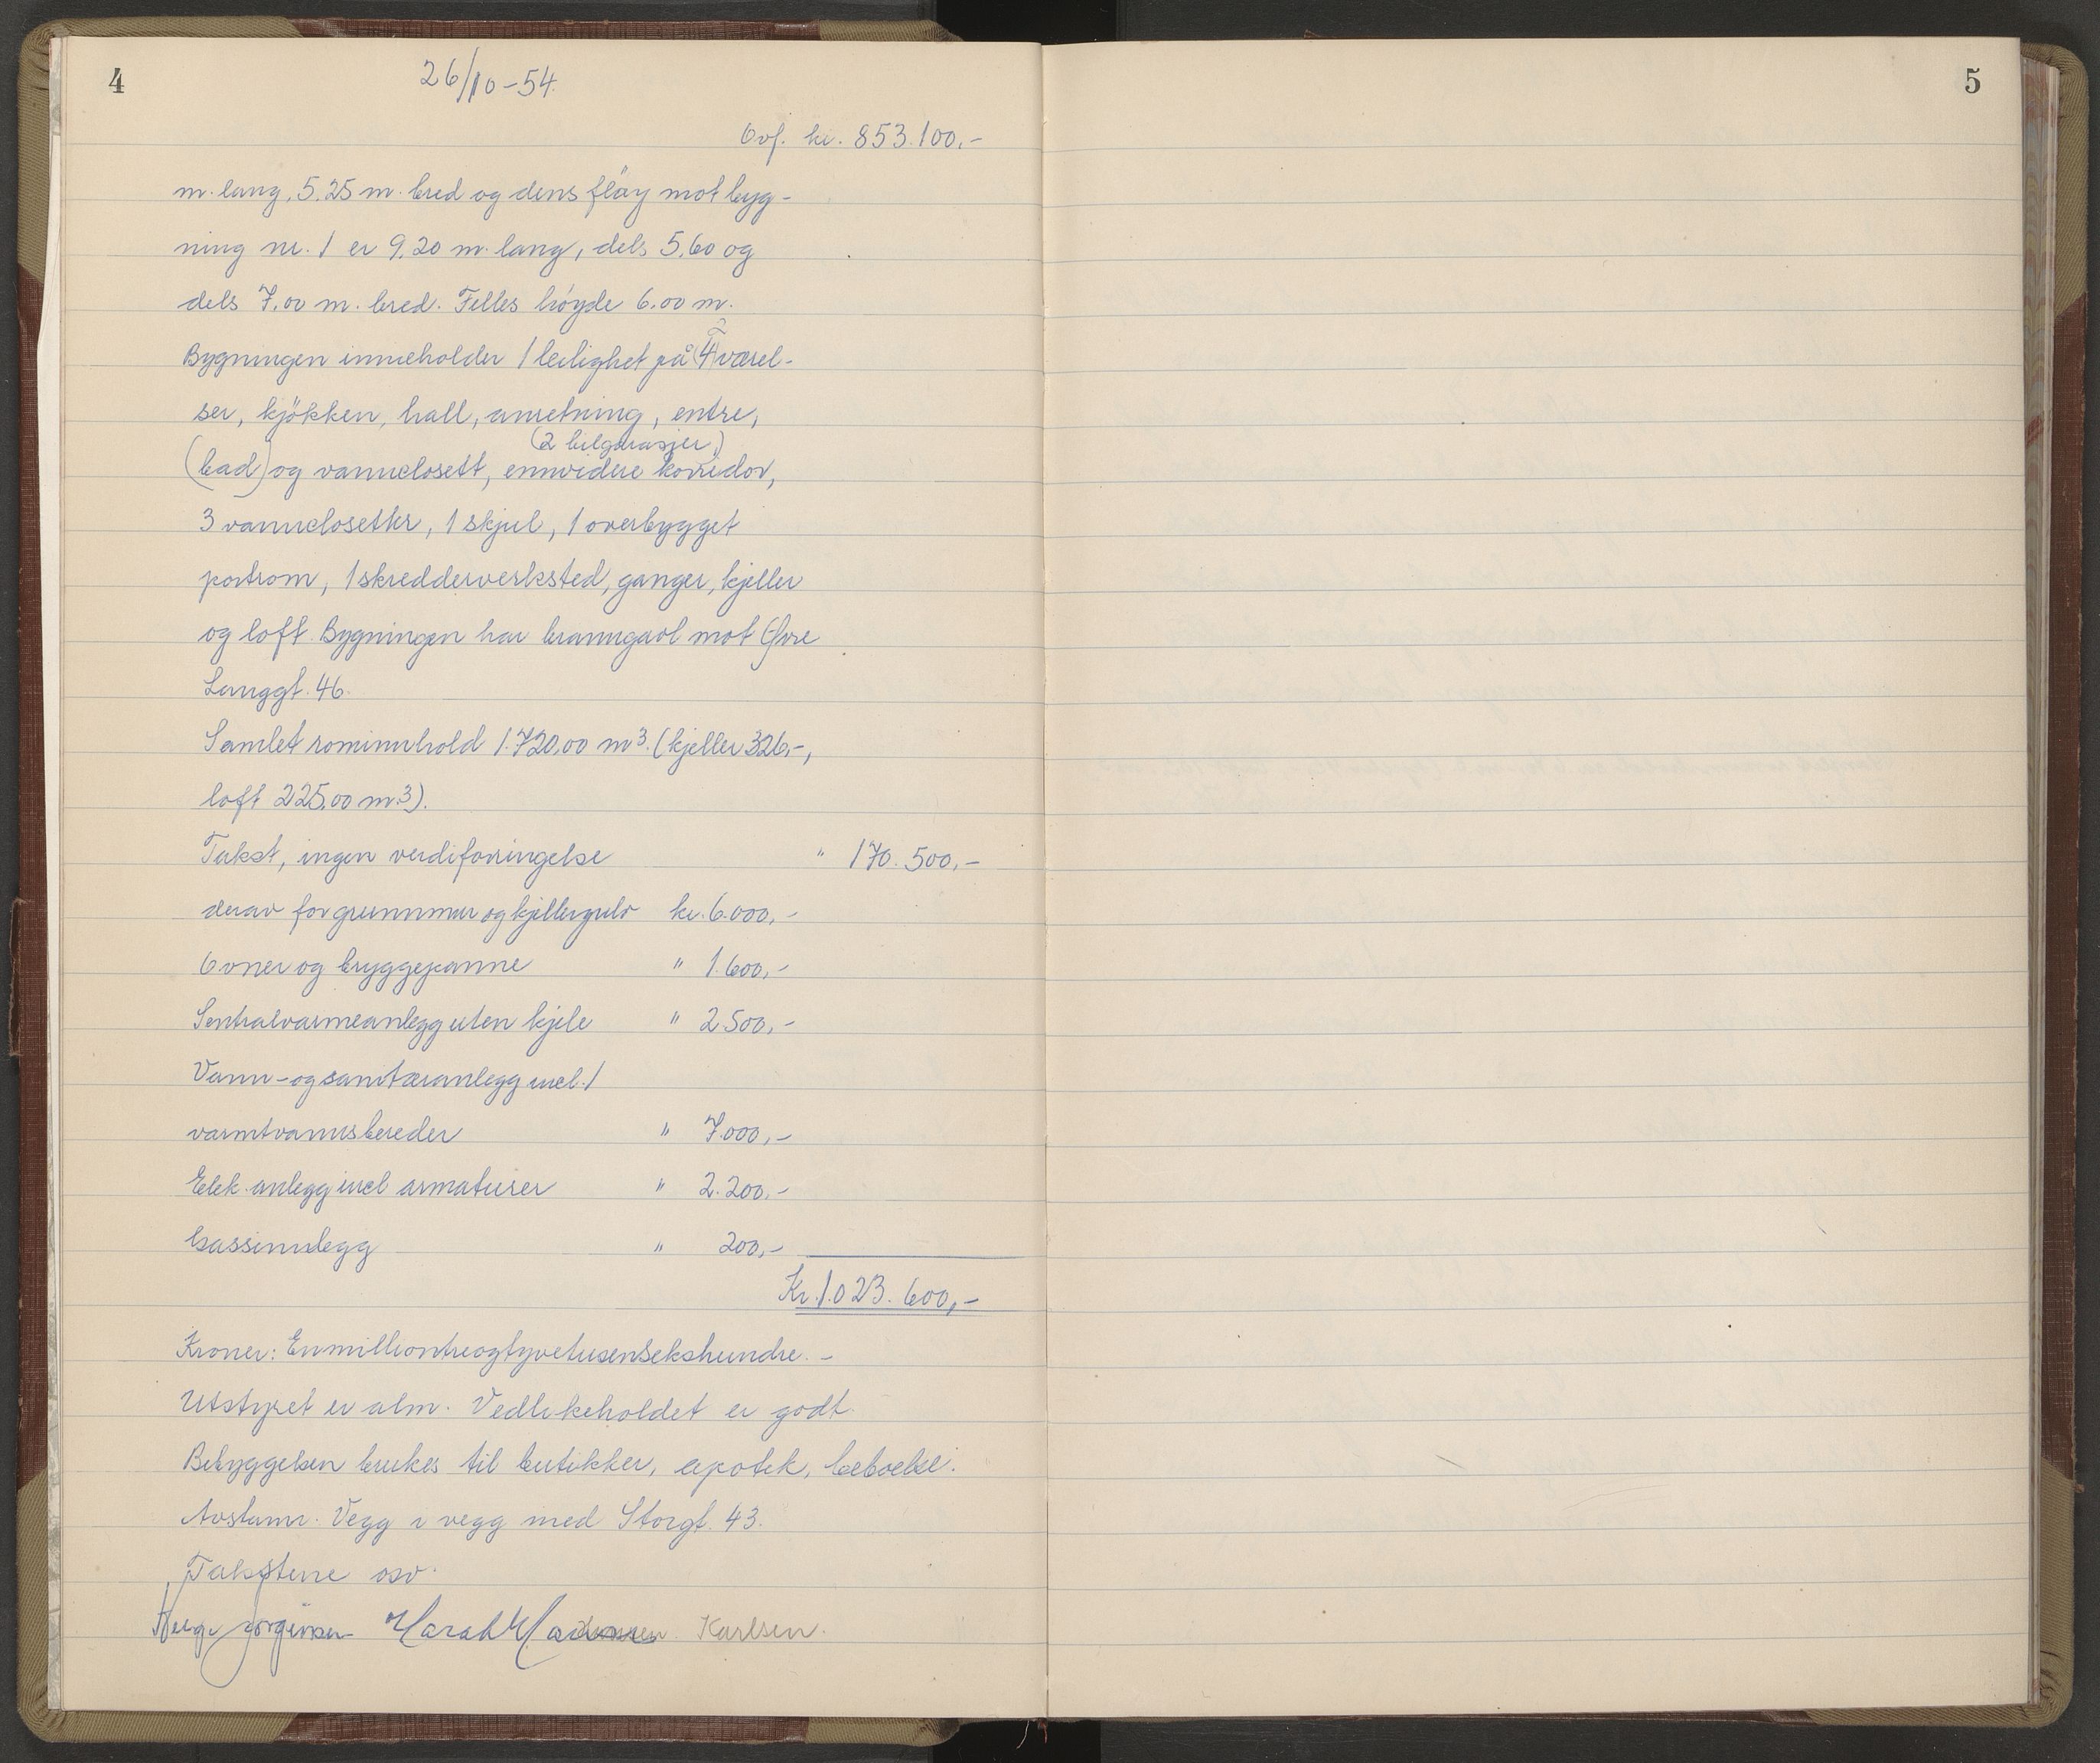 4
26/10-54.
Ovf. kr. 853.100,-
m. lang, 5,25 m. bred og dens fløy mot byg-
ning nr. 1 er 9,20 m. lang, dels 5,60 og
dels 7,00 m. bred. Felles høyde 6,00 m.
Bygningen inneholder 1 leilighet på (4) værel-
ser, kjøkken, hall, anretning, entre,
(2 bilgarasjer)
(bad) og vannclosett, ennvidere korridor,
3 vannclosetter, 1 skjul, 1 overbygget
portrom, 1 skredderverksted, ganger, kjeller
og loft. Bygningen har branngavl mot Øvre
Langgt. 46.
Samlet rominnhold 1.720,00 m³. (kjeller 326,-,
loft 225,00 m³).
Takst, ingen verdiforringelse " 170.500,-
derav for grunnmur og kjellergulv kr. 6.000,-
Ovner og bryggepanne " 1.600,-
Sentralvarmeanlegg uten kjele " 2.500,-
Vann- og sanitæranlegg incl. 1
varmtvannsbereder " 7.000,-
Elek. anlegg incl armaturer " 2.200,-
Gassinnlegg " 200,-
Kr. 1.023.600,-
Kroner: Enmilliontreogtyvetusensekshundre. -
Utstyret er alm. Vedlikeholdet er godt.
Bebyggelsen brukes til butikker, apotek, beboelse.
Avstann. Vegg i vegg med Storgt. 43.
Takstene osv.
Helge Jørgensen Harald Karlsen.
5